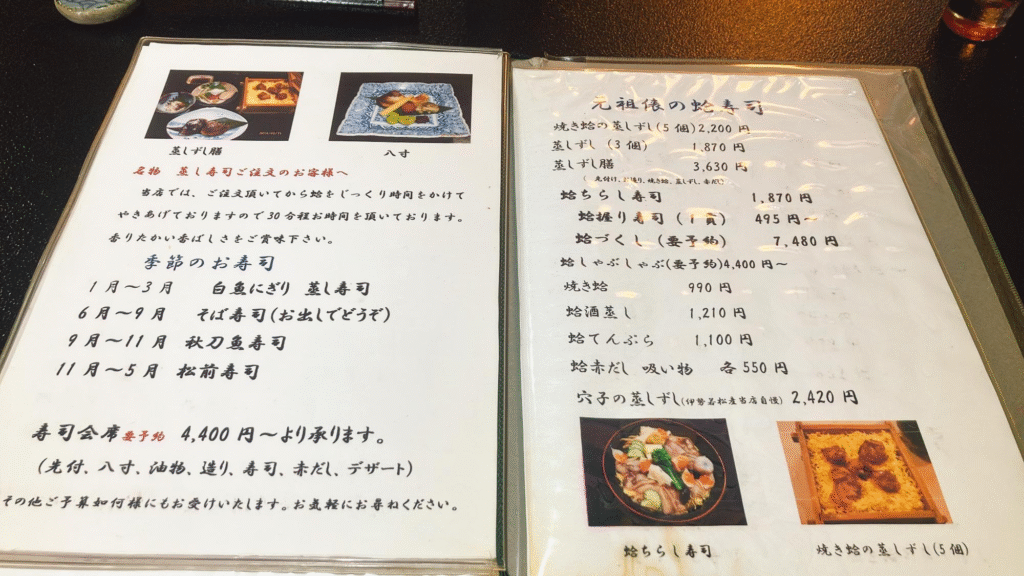 蒸しずし膳
八寸
名物 蒸し寿司ご注文のお客様へ
当店では、ご注文頂いてから蛤をじっくり時間をかけて
やきあげておりますので30分程お時間を頂いております。
香りたかい香ばしさをご賞味下さい。
季節のお寿司
1月～3月 白魚にぎり 蒸し寿司
6月～9月 そば寿司(お出しでどうぞ)
9月～11月 秋刀魚寿司
11月～5月 松前寿司
寿司会席要予約 4,400円～より承ります。
(先付、八寸、油物、造り、寿司、赤だし、デザート)
その他ご予算如何様にもお受けいたします。お気軽にお尋ねください。
元祖俵の蛤寿司
焼き蛤の蒸しずし(5個)2,200円
蒸しずし (3個) 1,870円
蒸しずし膳 3,630円
(先付け、お造り、焼き蛤、蒸しずし、赤だし)
蛤ちらし寿司 1,870円
蛤握り寿司 (1貫) 495円～
蛤づくし (要予約) 7,480円
蛤しゃぶしゃぶ(要予約)4,400円～
焼き蛤 990円
蛤酒蒸し 1,210円
蛤てんぷら 1,100円
蛤赤だし 吸い物 各550円
穴子の蒸しずし(伊勢若松産当店自慢) 2,420円
蛤ちらし寿司
焼き蛤の蒸しずし(5個)